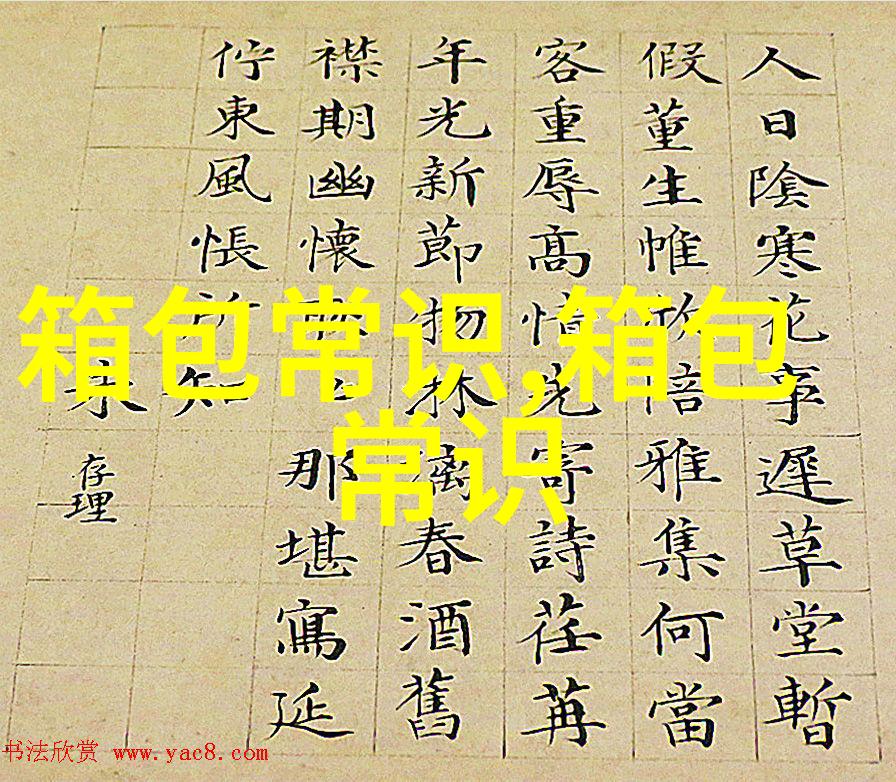 人日陰寒花事遲草堂暫
假董生帷欣陪雅集何當
客重辱高情先寄詩荏苒
年光新節物淋漓春酒舊
襟期幽懷那堪寫延
佇東風悵所知
存理
箱包常识,箱包
常识
书法欣赏 www.yac8.com